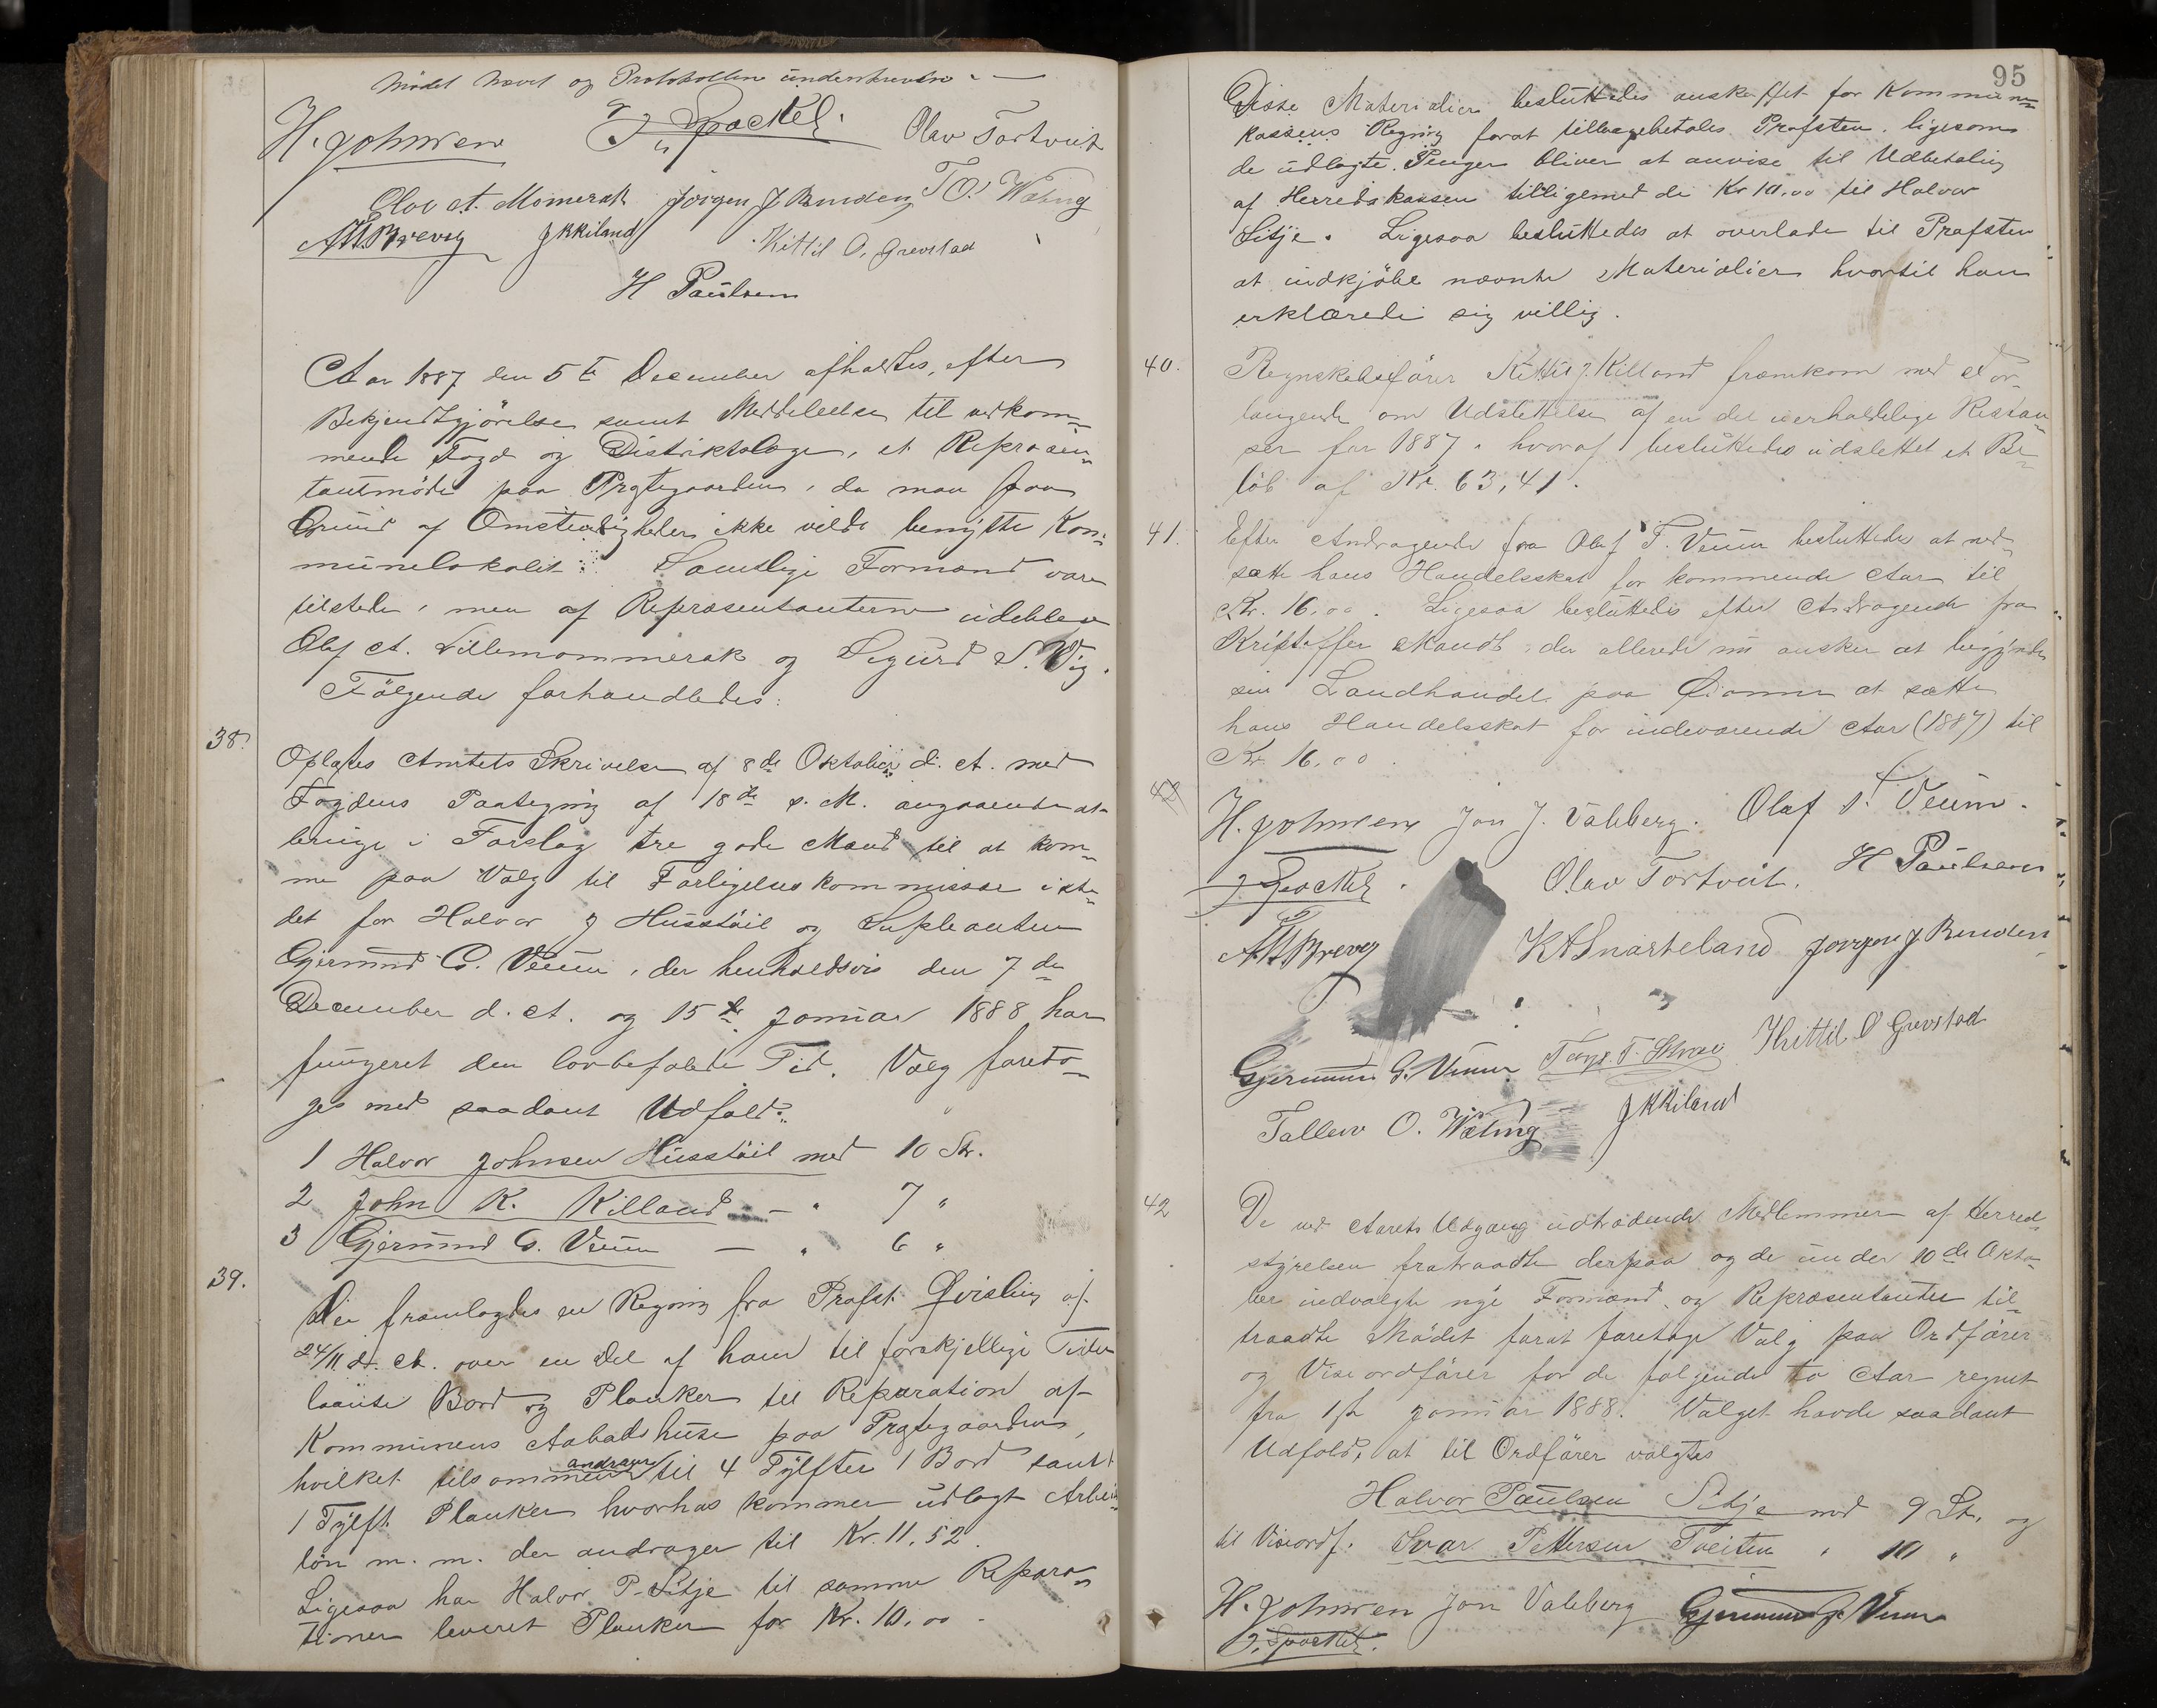 Mødet hævet og Protokollen underskreven. —
H. Johnsen J. Spockel. Olav Tortveit
Olav A. Momerak Jørgen J. Bunden T. O. Wæting
JKKiland Kittil O. Grevstad
H Paulsen
Aar 1887 den 5te December afholdtes, efter
Bekjendtgjörelse samt Meddelelse til vedkom-
mende Fogd og Distriktslæge, et Repræsen-
tantmöde paa Prestegaarden, da man paa
Grund af Omstendigheder ikke vilde benytte Kom-
munelokalet. Samtlige Formænd vare
tilstede, men af Repræsentanterne udebleve
Olaf A. Lillemommerak og Sigurd S. Vig.
Fölgende forhandledes:
38.
Oplæstes Amtets Skrivelse af 8de Oktober d. A. med
Fogdens Paategning af 18de s. M. angaaende at
bringe i Forslag tre gode Mænd til at kom-
me paa Valg til Forligelseskommissær iste-
det for Halvor J Husstöil og Supleanten
Gjermund G. Veum, der henholdsvis den 7de
December d. A. og 15de Januar 1888 har
fungeret den lovbefalede Tid. Valg foreto-
ges med saadant Udfald:
1 Halvor Johnsen Husstöil med 10 St.
2 John K. Killand — " 7 "
3 Gjermund G. Veum — " 6 "
39.
Der fremlagdes en Regning fra Profst Qvisling af
24/11 d. A. over en Del af ham til forskjellige Tider
laante Bord og Planker til Reparation af
Kommunens Aabodshuse paa Prestegaarden,
hvilket tilsammen andrager til 4 Tylfter 1 Bord samt
1 Tylft Planker hvorhos kommer udlagt Arbeids-
lön m. m. der andrager til Kr. 11,52.
Ligesaa har Halvor P. Sitje til samme Repara-
tioner leveret Planker for Kr. 10,00 -
95
Disse Materialier besluttedes anskaffet for Kommune-
kassens Regning forat tilbagebetales Profsten, ligesom
de udlagte Penger bliver at anvise til Udbetaling
af Herredskassen tilligemed de Kr 10.00 til Halvor
Sitje. Ligesaa besluttedes at overlade til Profsten
at indkjöbe nævnte Materialier hvortil han
erklærede sig villig.
40.
Regnskabsförer Kittil J. Killand fremkom med For-
langende om Udslettelse af en del uerholdelige Restan-
ser for 1887, hvoraf besluttedes udslettet et Be-
löb af Kr. 63,41.
41.
Efter Andragende fra Olaf T. Veum besluttedes at ned-
sætte hans Handelsskat for kommende Aar til
Kr. 16,00. Ligesaa besluttedes efter Andragende fra
Kristoffer Mandt, der allerede nu ønsker at begynde
sin Landhandel paa at sætte
hans Handelsskat for indeværende Aar (1887) til
Kr. 16,00.
42
H. Johnsen Jon J. Valeberg. Olaf T. Veum.
J. Spockel. Olav Tortveit. H Paulsen
K A Snarteland Jørgen J Bunden
Gjermund G. Veum Kittil O Grevstad
Tallew O. Wæting JKKiland
42
De ved Aarets Udgang udtrædende Medlemmer af Herred-
styrelsen fratraadte derpaa og de under 10de Okto-
ber indvalgte nye Formænd og Repræsentanter til-
traadte Mödet forat foretage Valg paa Ordförer
og Viseordförer for de følgende to Aar regnet
fra 1ste Januar 1888. Valget havde saadant
Udfald, at til Ordförer valgtes
Halvor Paulsen Sitje med 9 St. og
til Viseordf. Ivar Pettersen Tveiten " 10 "
H. Johnsen Jon Valeberg Gjermund G. Veum
J. Spockel.